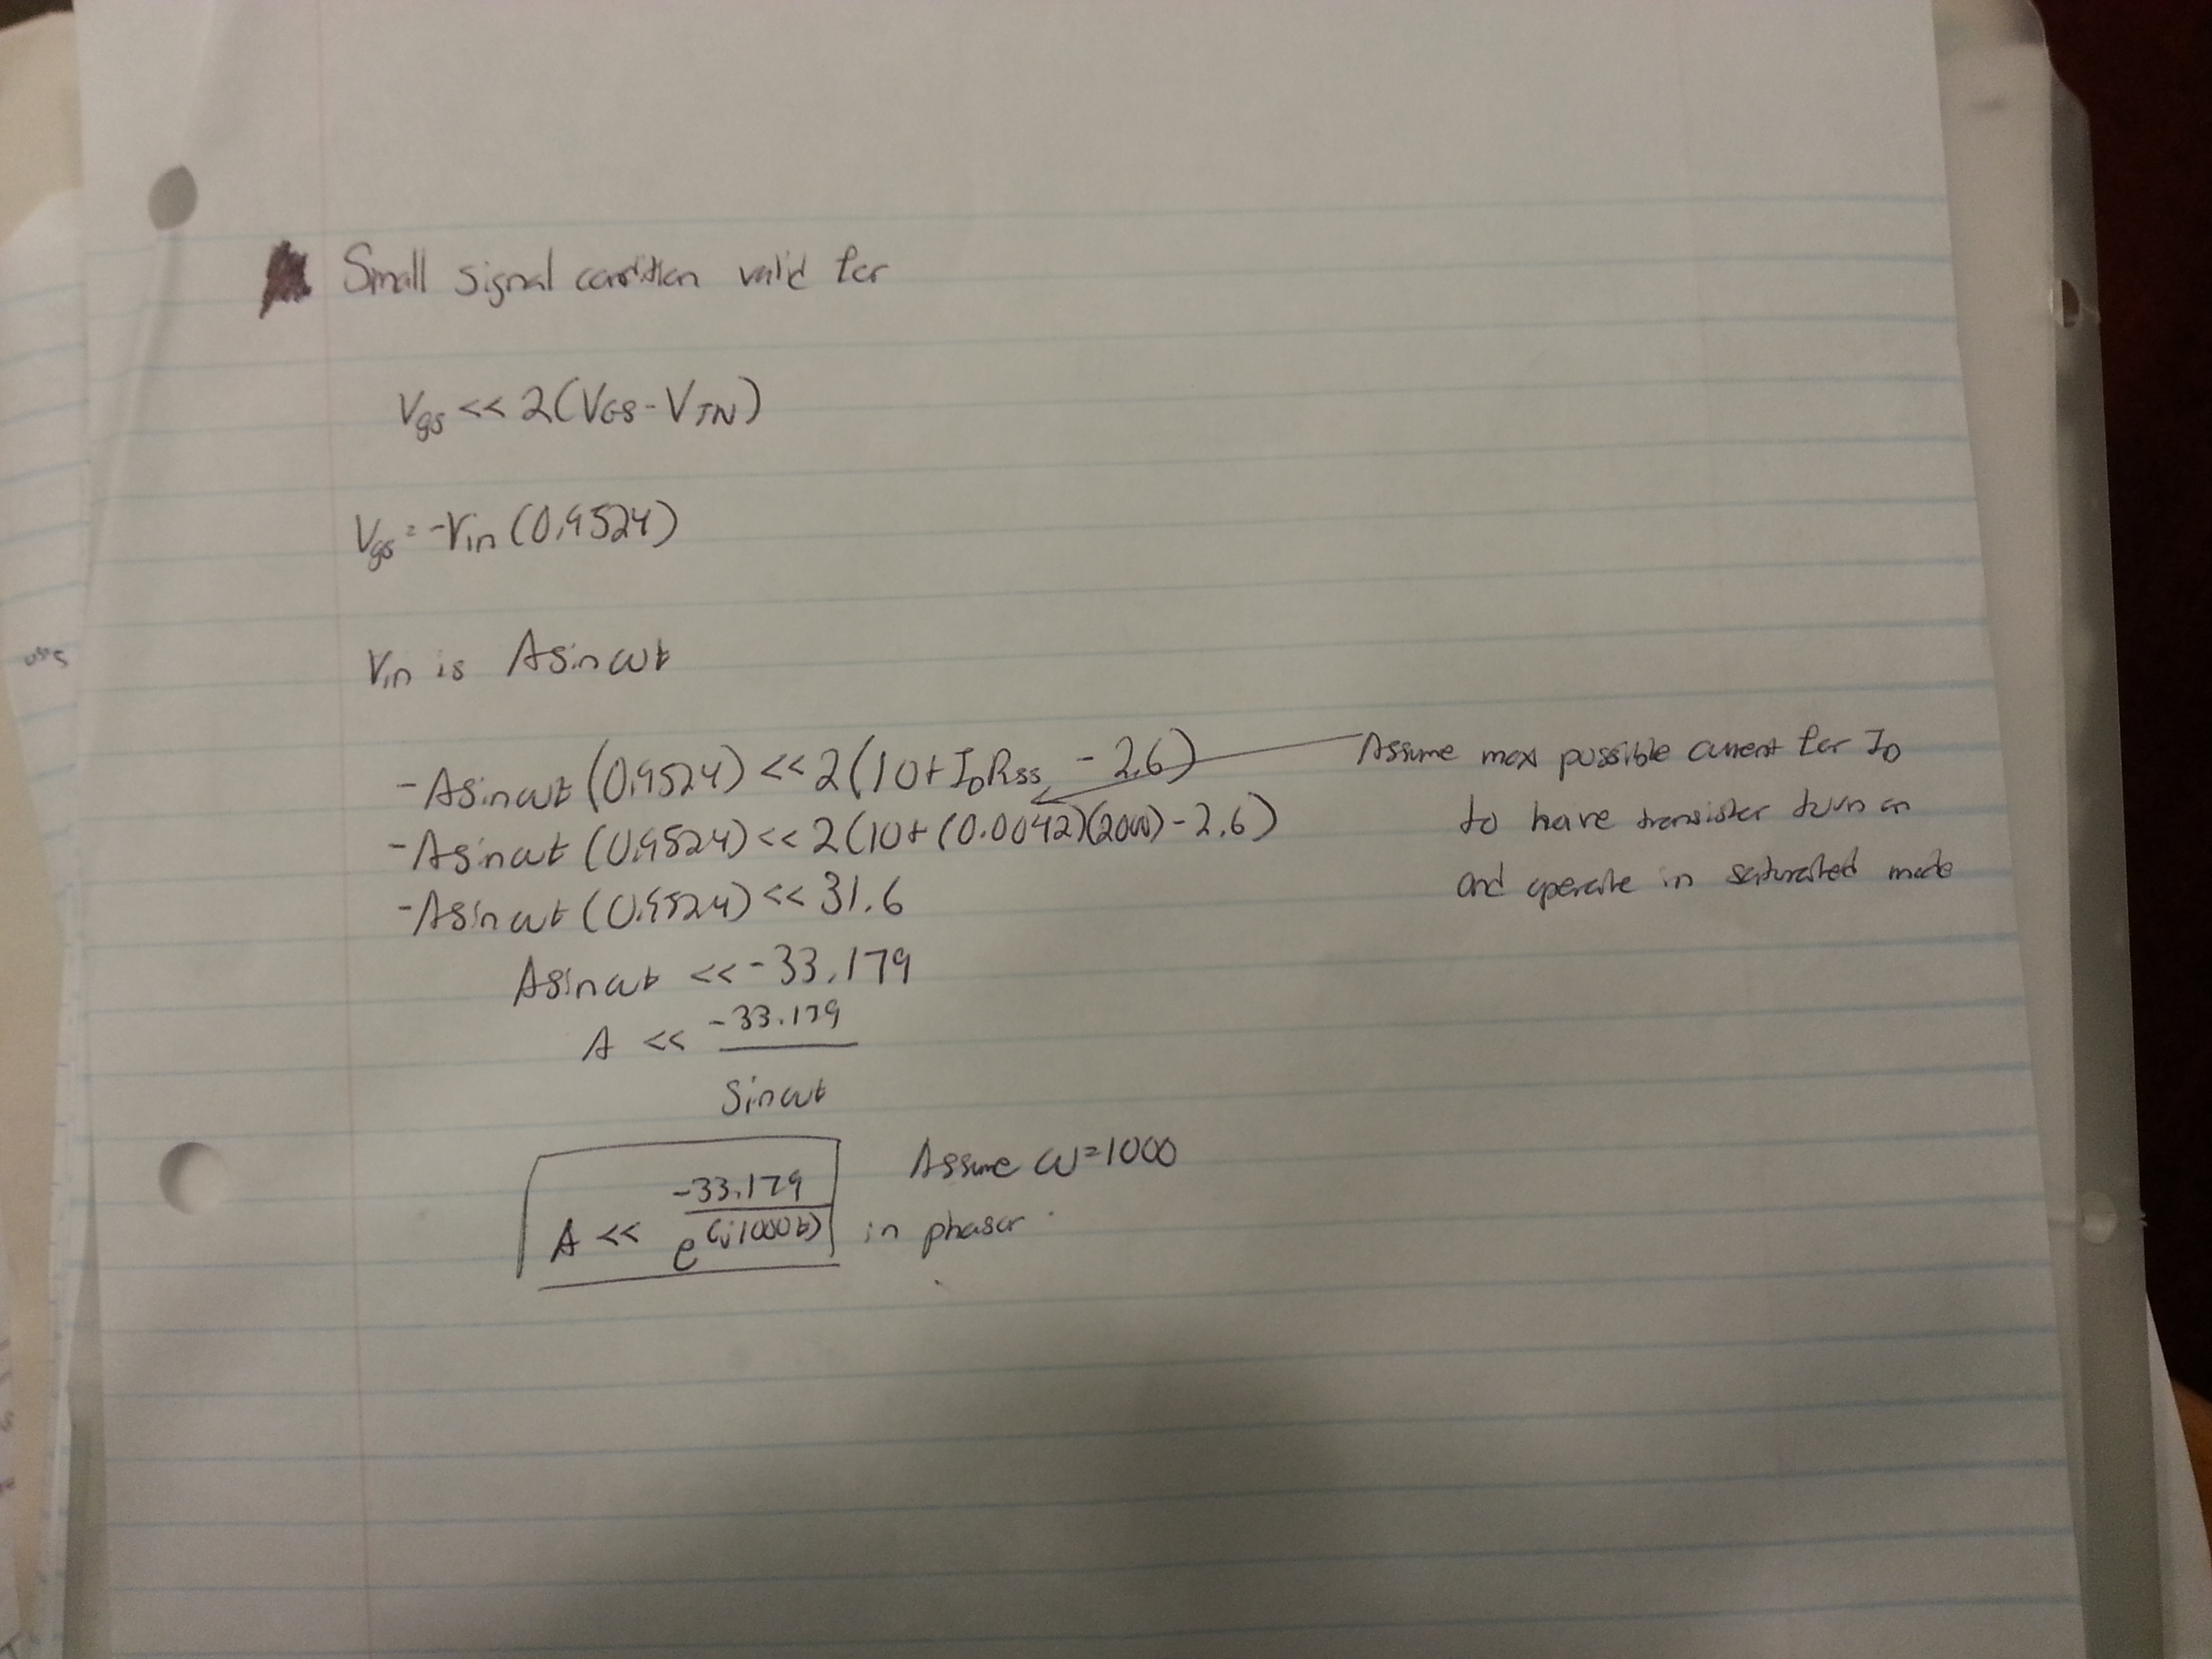 Small signal condition valid for
Vgs << 2(VGS - VTN)
Vgs = -Vin (0.9524)
Vin is Asinωt
-Asinωt (0.9524) << 2(10 + IDRSS - 2.6)
Assume max possible current for ID
to have transistor turn on
and operate in saturated mode
-Asinωt (0.9524) << 2(10 + (0.0042)(2000) - 2.6)
-Asinωt (0.9524) << 31.6
Asinωt << -33.179
A << -33.179 / sinωt
Assume ω=1000
A << -33.179 / e^(j1000t) in phasor.